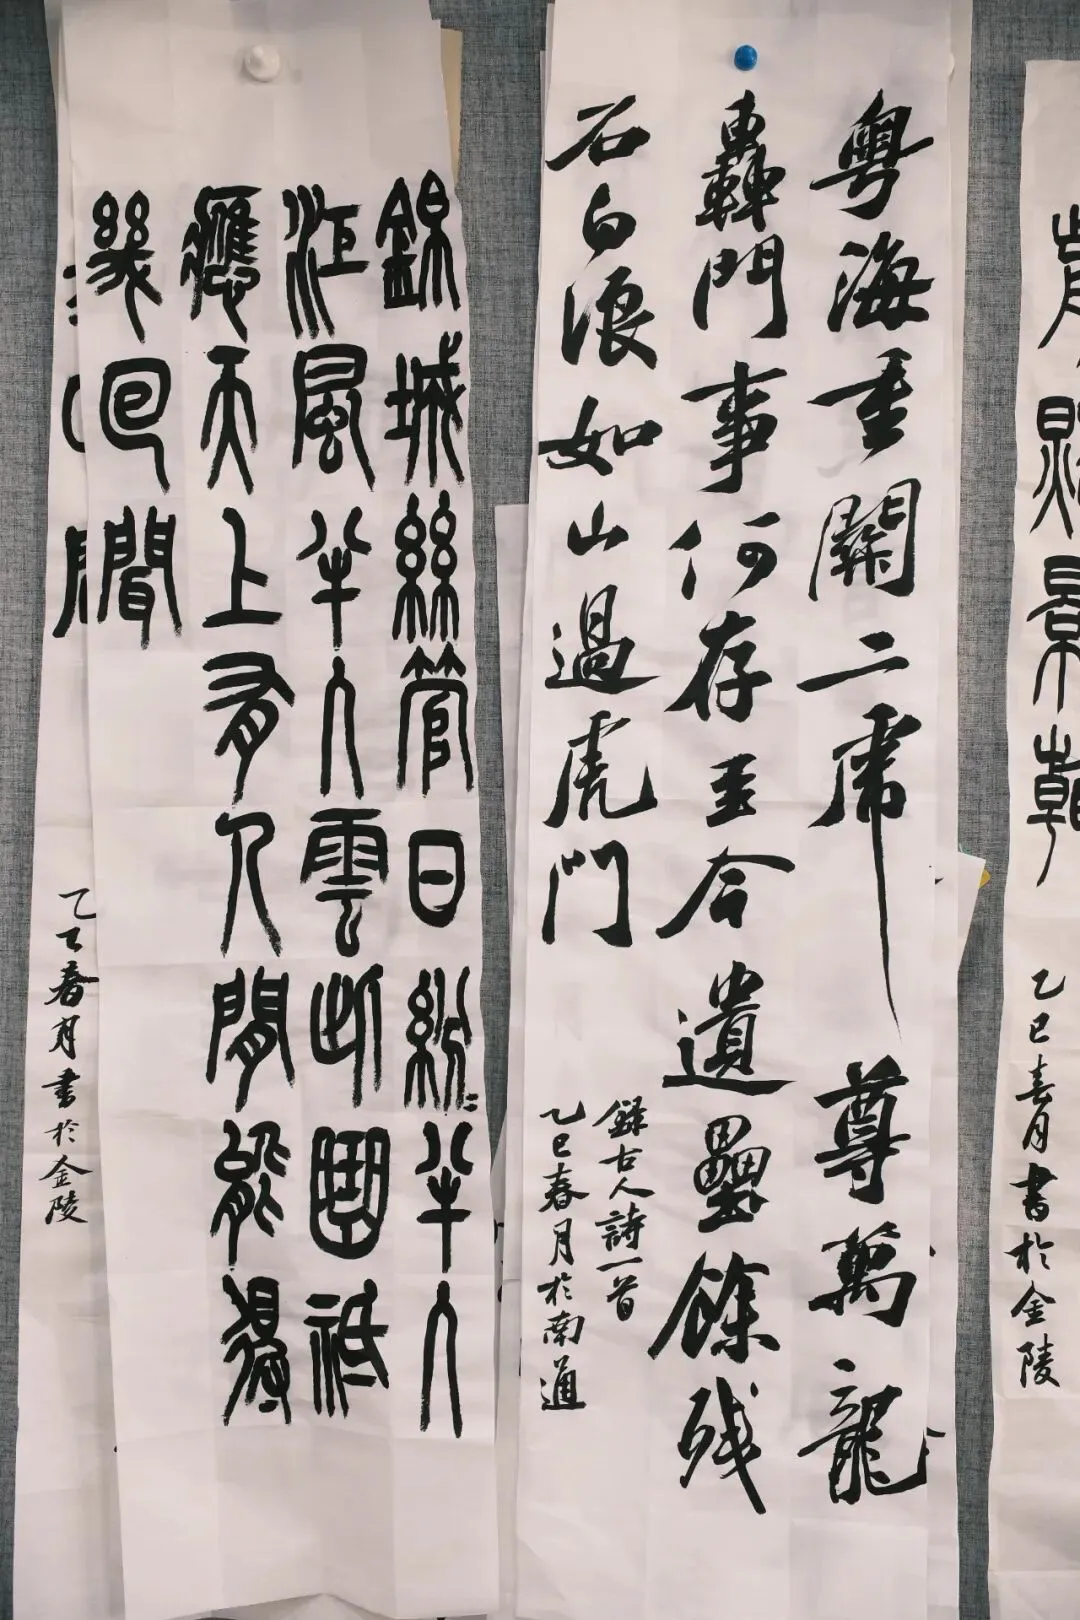 乙巳春月書於金陵
粵海重關二虎尊萬龍
轟門事何存至今遺壘餘殘
石白浪如山過虎門
錄古人詩一首
乙巳春月於南通
錦城絲管日紛〻半入
江風半入雲此曲祗
應天上有人間能得
幾回聞
乙巳春月書於金陵